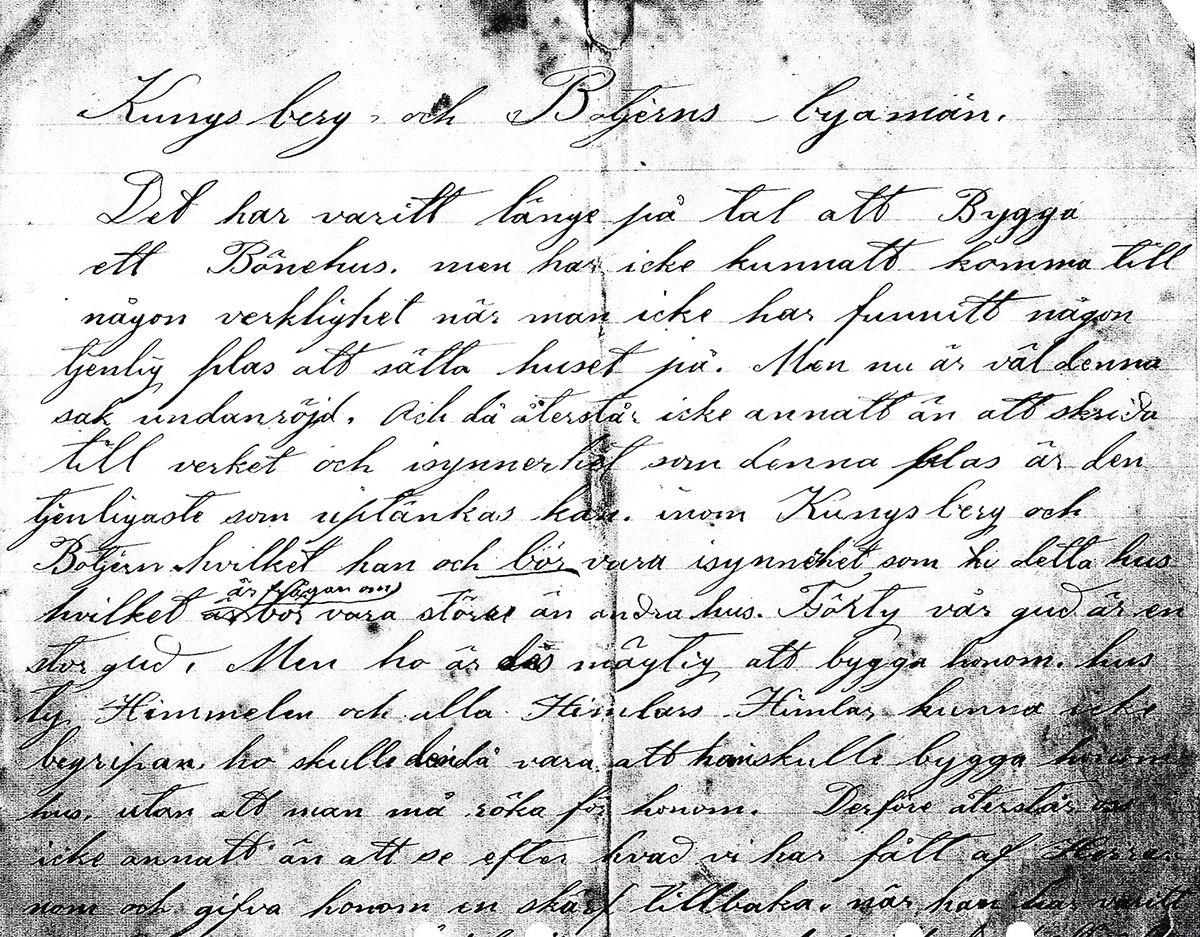 Kungsberg och Botjerns byamän.
Det har varitt länge på tal att Bygga
ett Bönehus. men har icke kunnatt komma till
någon verklighet när man icke har funnitt någon
tjenlig plas att sätta huset på. Men nu är väl denna
sak undanröjd. Och då återstår icke annatt än att skrida
till verket och isynnerhet som denna plas är den
tjenligaste som uptänkas kan. inom Kungsberg och
Botjern hvilket han och bör vara isynnehet som detta hus
är frågan om
hvilket bör vara större än andra hus. Förty vår gud är en
stor gud. Men ho är mägtig att bygga honom hus
ty Himmelen och alla Himlars Himlar kunna icke
begripan. ho skulle vara att han skulle bygga honom
hus, utan att man må röka för honom. Derföre återstår oss
icke annatt än att se efter hvad vi har fått af Herren
nom och gifva honom en skärf tillbaka. när han har varitt